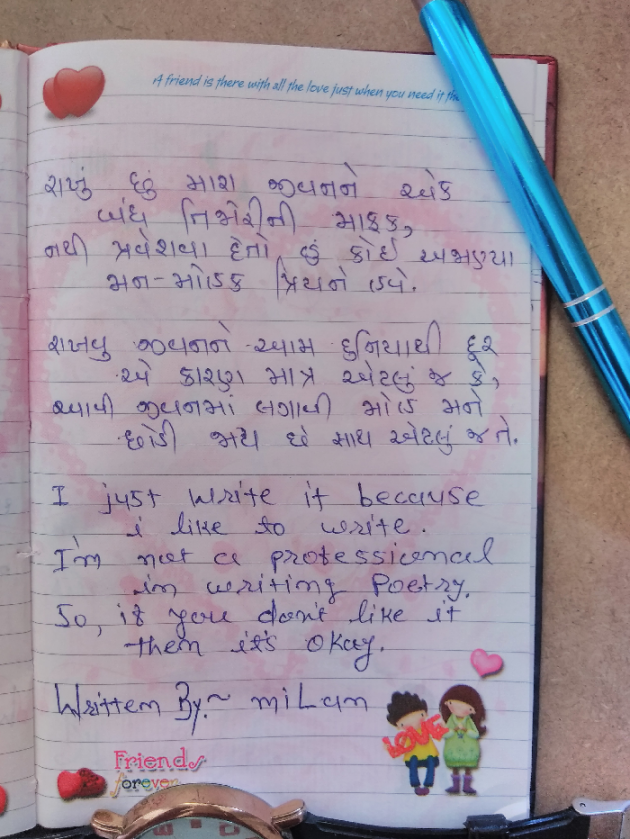 A friend is there with all the love just when you need it the
રાખું છું મારા જીવનને એક
બંધ તિજોરીની માફક,
નથી પ્રવેશવા દેતો હું કોઈ અજાણ્યા
મન-મોહક પ્રિયને હવે.
રાખવુ જીવનને આમ દુનિયાથી દૂર
એ કારણ માત્ર એટલું જ કે,
આવી જીવનમાં લગાવી મોહ મને
છોડી જાય છે સાથ એટલું જ તે.
I just write it because
i like to write.
I'm not a professional
in writing Poetry.
So, if you don't like it
then it's okay.
Written By:~ miLan
LOVE
Friends
forever